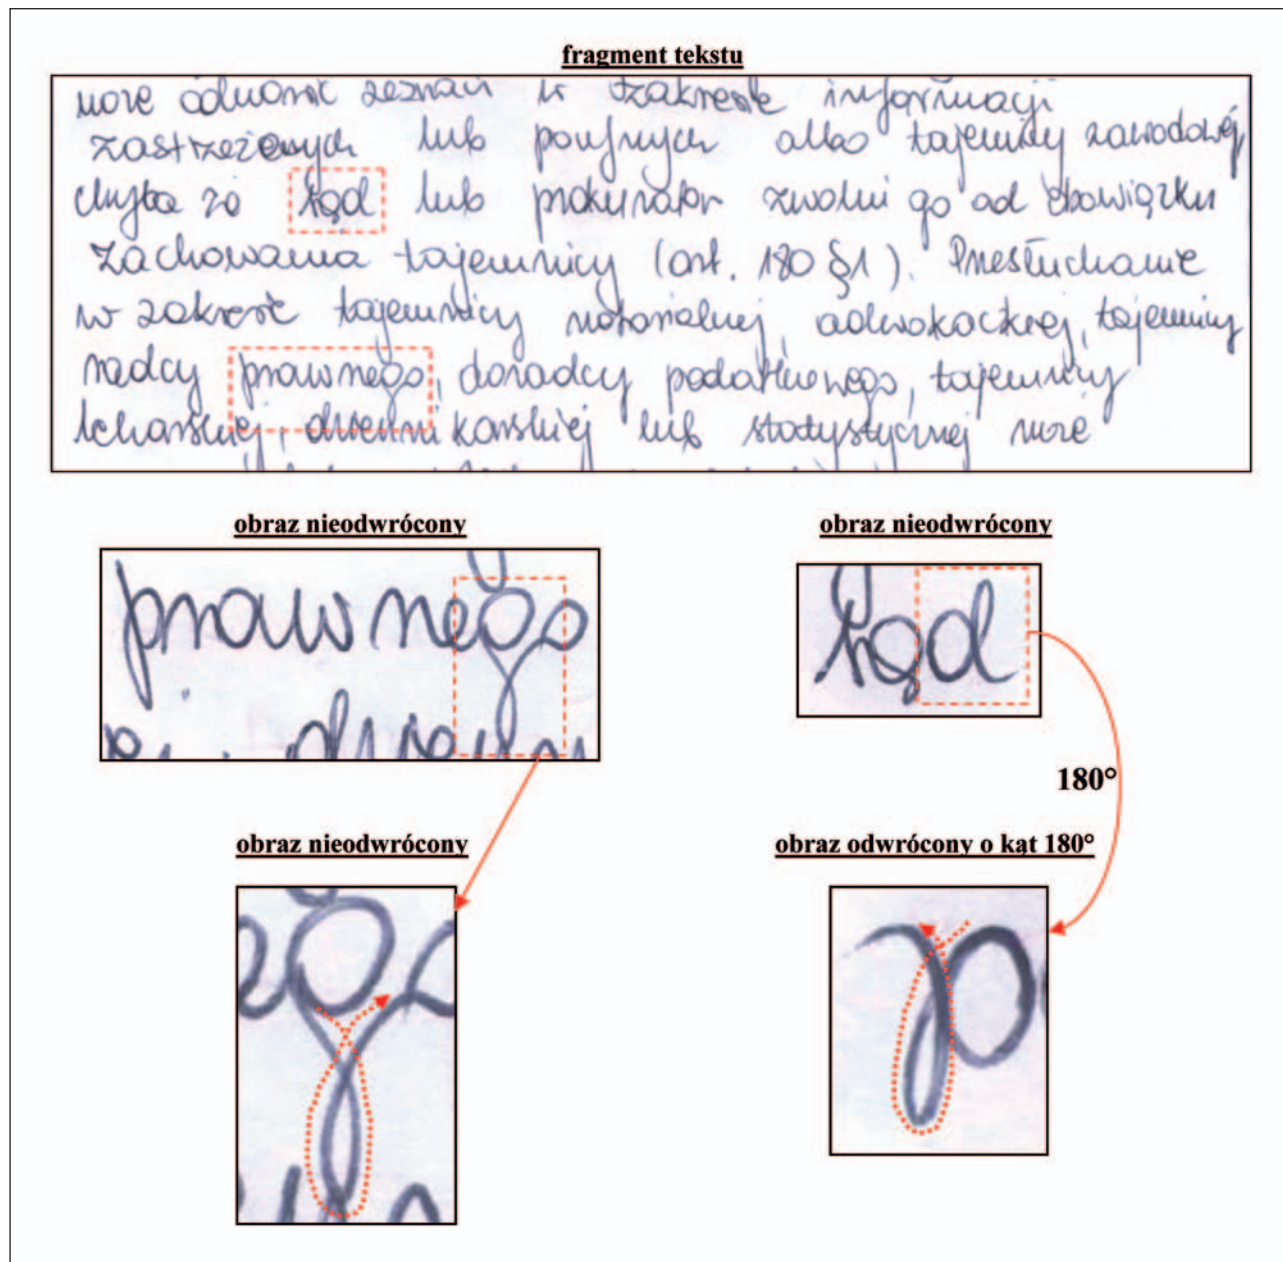 fragment tekstu
może odmówić zeznań w zakresie informacji
zastrzeżonych lub poufnych albo tajemnicy zawodowej
chyba że sąd lub prokurator zwolni go od obowiązku
zachowania tajemnicy (art. 180 §1). Przesłuchanie
w zakresie tajemnicy notarialnej, adwokackiej, tajemnicy
radcy prawnego, doradcy podatkowego, tajemnicy
lekarskiej, dziennikarskiej lub statystycznej może
obraz nieodwrócony
obraz nieodwrócony
prawnego
sąd
180°
obraz nieodwrócony
obraz odwrócony o kąt 180°